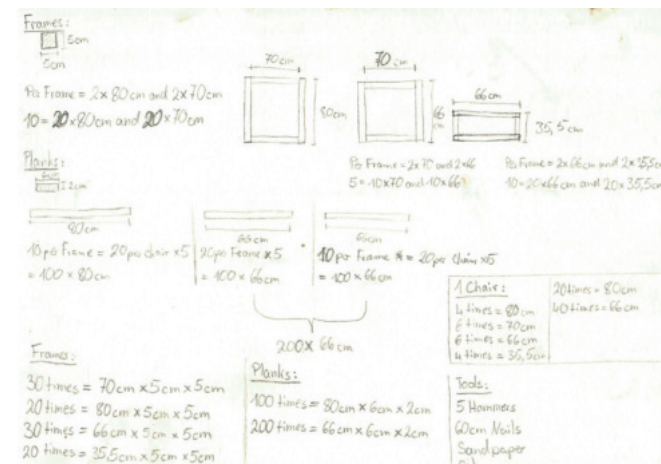 Frames:
5cm
5cm
Per Frame = 2x 80cm and 2x70cm
10 = 20x80cm and 20x70cm
70cm
80cm
70 cm
66 cm
Per Frame = 2x70 and 2x66
5 = 10x70 and 10x66
66 cm
35,5 cm
Per Frame = 2x66cm and 2x35,5c
10 = 20x66 cm and 20x35,5cm
Planks:
6cm
2cm
80cm
10 per Frame = 20 per chair x5
= 100 x 80cm
66cm
20 per Frame x5
= 100 x 66cm
66cm
10 per Frame = 20 per chair x5
= 100 x 66cm
200x 66cm
1 Chair:
4 times = 80cm
6 times = 70cm
6 times = 66cm
4 times = 35,5cm
20 times = 80cm
40 times = 66cm
Frames:
30 times = 70cm x 5cm x 5cm
20 times = 80cm x 5cm x 5cm
30 times = 66cm x 5cm x 5cm
20 times = 35,5cm x 5cm x 5cm
Planks:
100 times = 80cm x 6cm x 2cm
200 times = 66cm x 6cm x 2cm
Tools:
5 Hammers
60cm Nails
Sandpaper